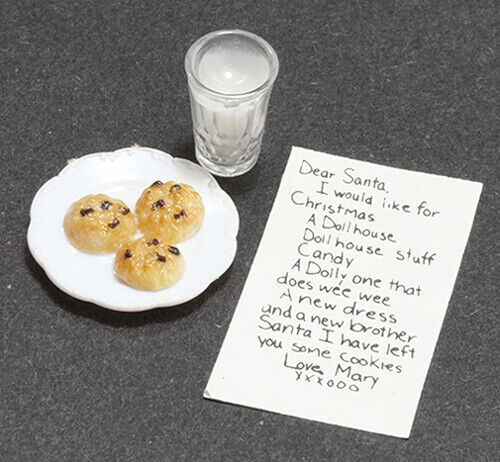 Dear Santa,
I would like for
Christmas
A Dollhouse
Dollhouse stuff
Candy
A Dolly one that
does wee wee
A new dress
and a new brother
Santa I have left
you some cookies
Love, Mary
xxxooo